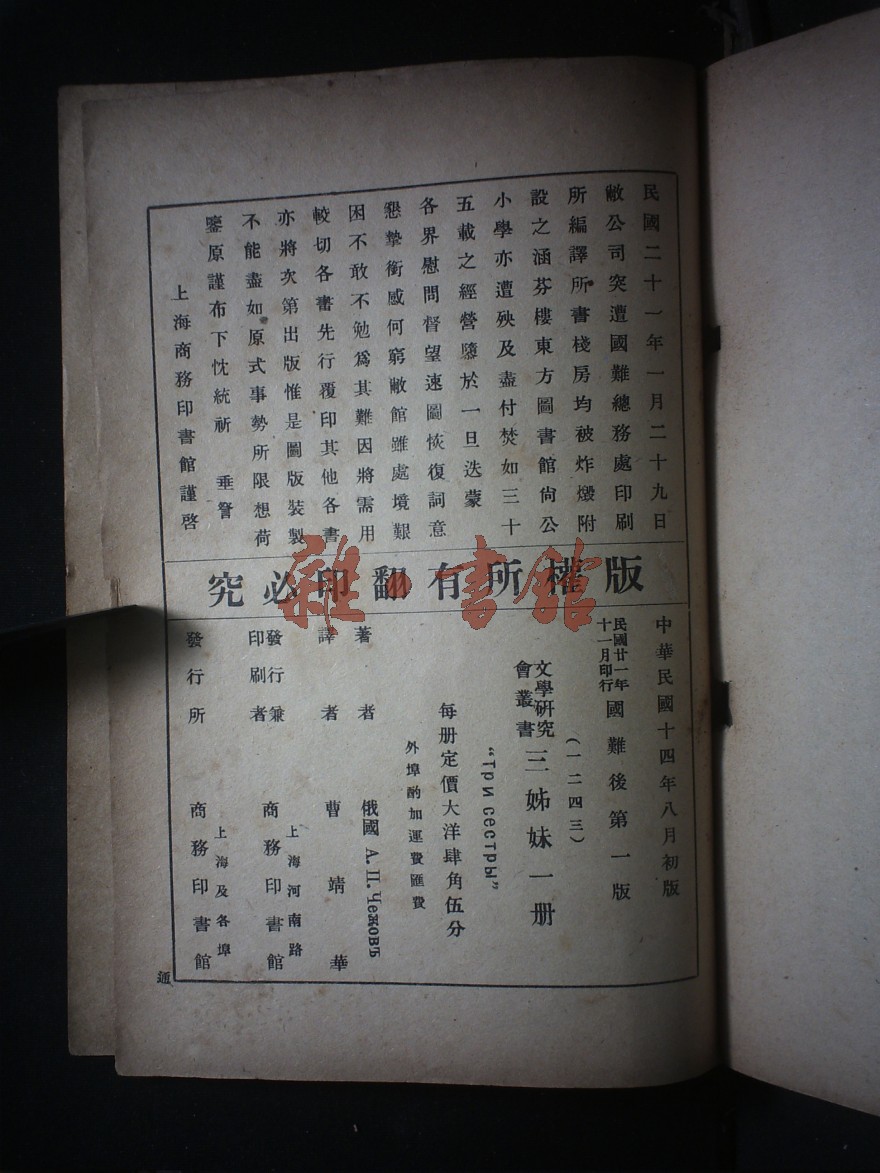 民國二十一年一月二十九日
敝公司突遭國難總務處印刷
所編譯所書棧房均被炸燬附
設之涵芬樓東方圖書館尙公
小學亦遭殃及盡付焚如三十
五載之經營隳於一旦迭蒙
各界慰問督望速圖恢復詞意
懇摯銜感何窮敝館雖處境艱
困不敢不勉爲其難因將需用
較切各書先行覆印其他各書
亦將次第出版惟是圖版裝製
不能盡如原式事勢所限想荷
鑒原謹布下忱統祈 垂詧
上海商務印書館謹啓
版權所有翻印必究
中華民國十四年八月初版
民國廿一年十一月印行 國難後第一版
(一二四三)
文學研究會叢書 三姊妹一册
“Три сестры”
每册定價大洋肆角伍分
外埠酌加運費匯費
著者 俄國 А. П. Чеховъ
譯者 曹靖華
發行兼印刷者 上海河南路 商務印書館
發行所 上海及各埠 商務印書館
通
雜·書館